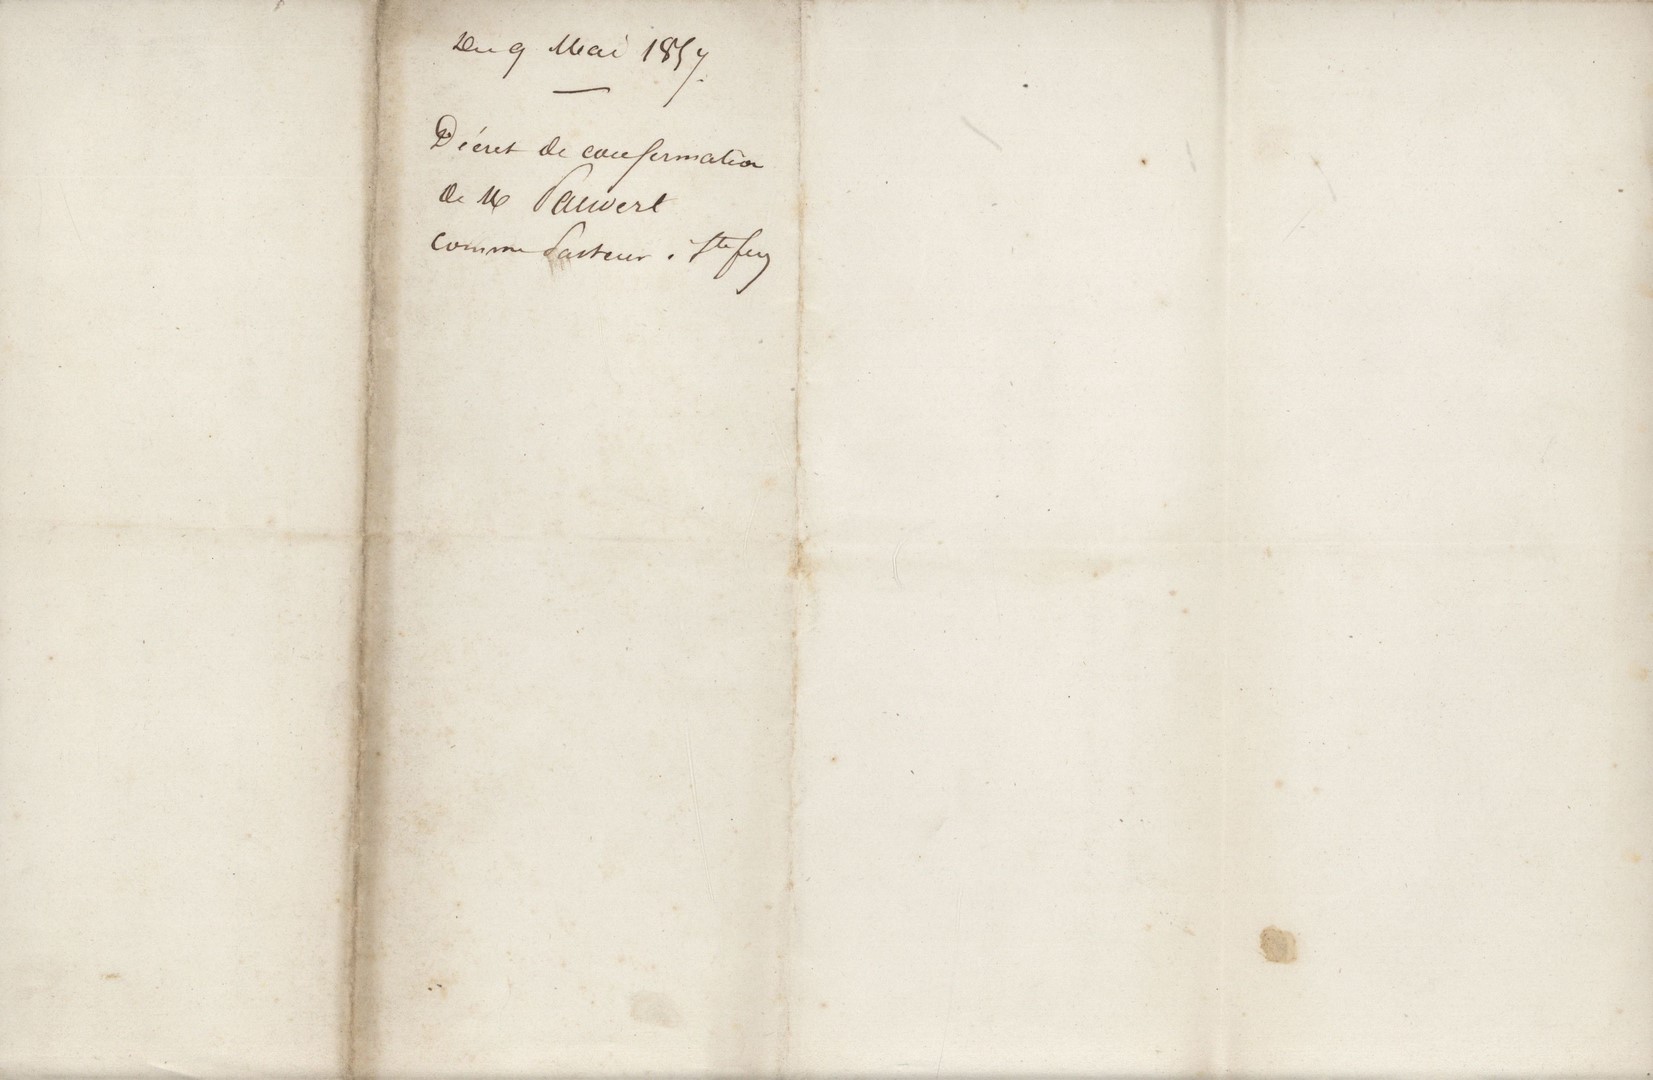 Du 9 Mai 1857.
Décret de confirmation
de M Pauvert
comme Pasteur à Ste foy